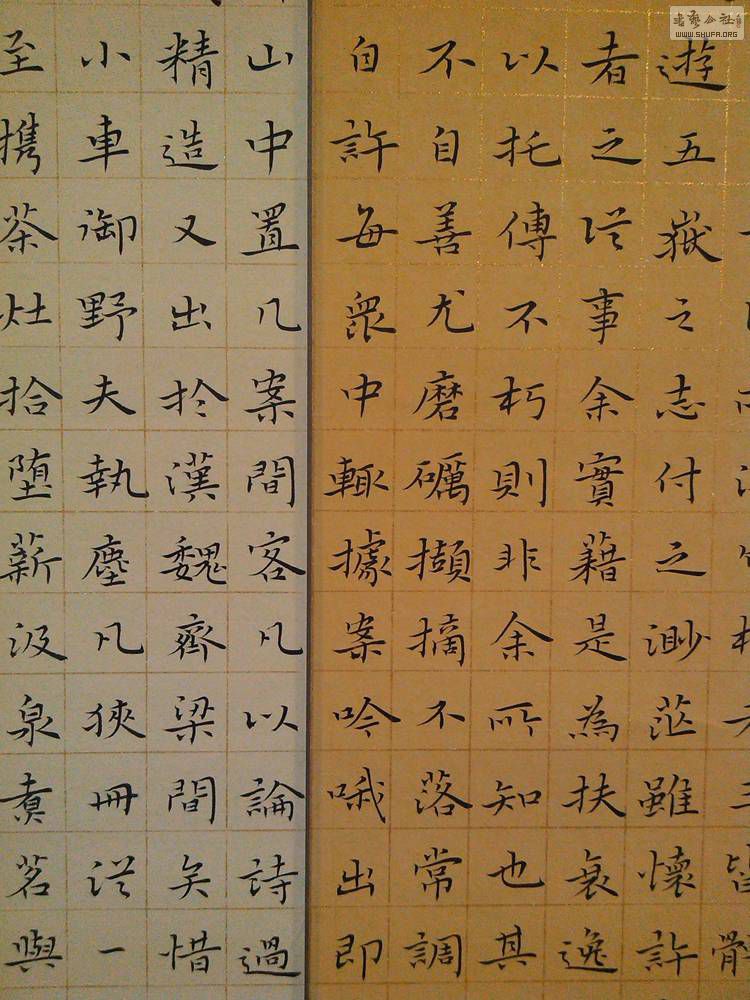 遊五嶽之志付之渺茫雖懷許
者之從事余實藉是為扶衰逸
以托傳不朽則非余所知也其
不自善尤磨礪擷摘不落常調
自許每眾中輒據案吟哦出即
山中置几案間客凡以論詩過
精造又出於漢魏齊梁間矣惜
小車御野夫執塵凡狹冊從一
至携茶灶拾堕薪汲泉煮茗與
WWW.SHUFA.ORG